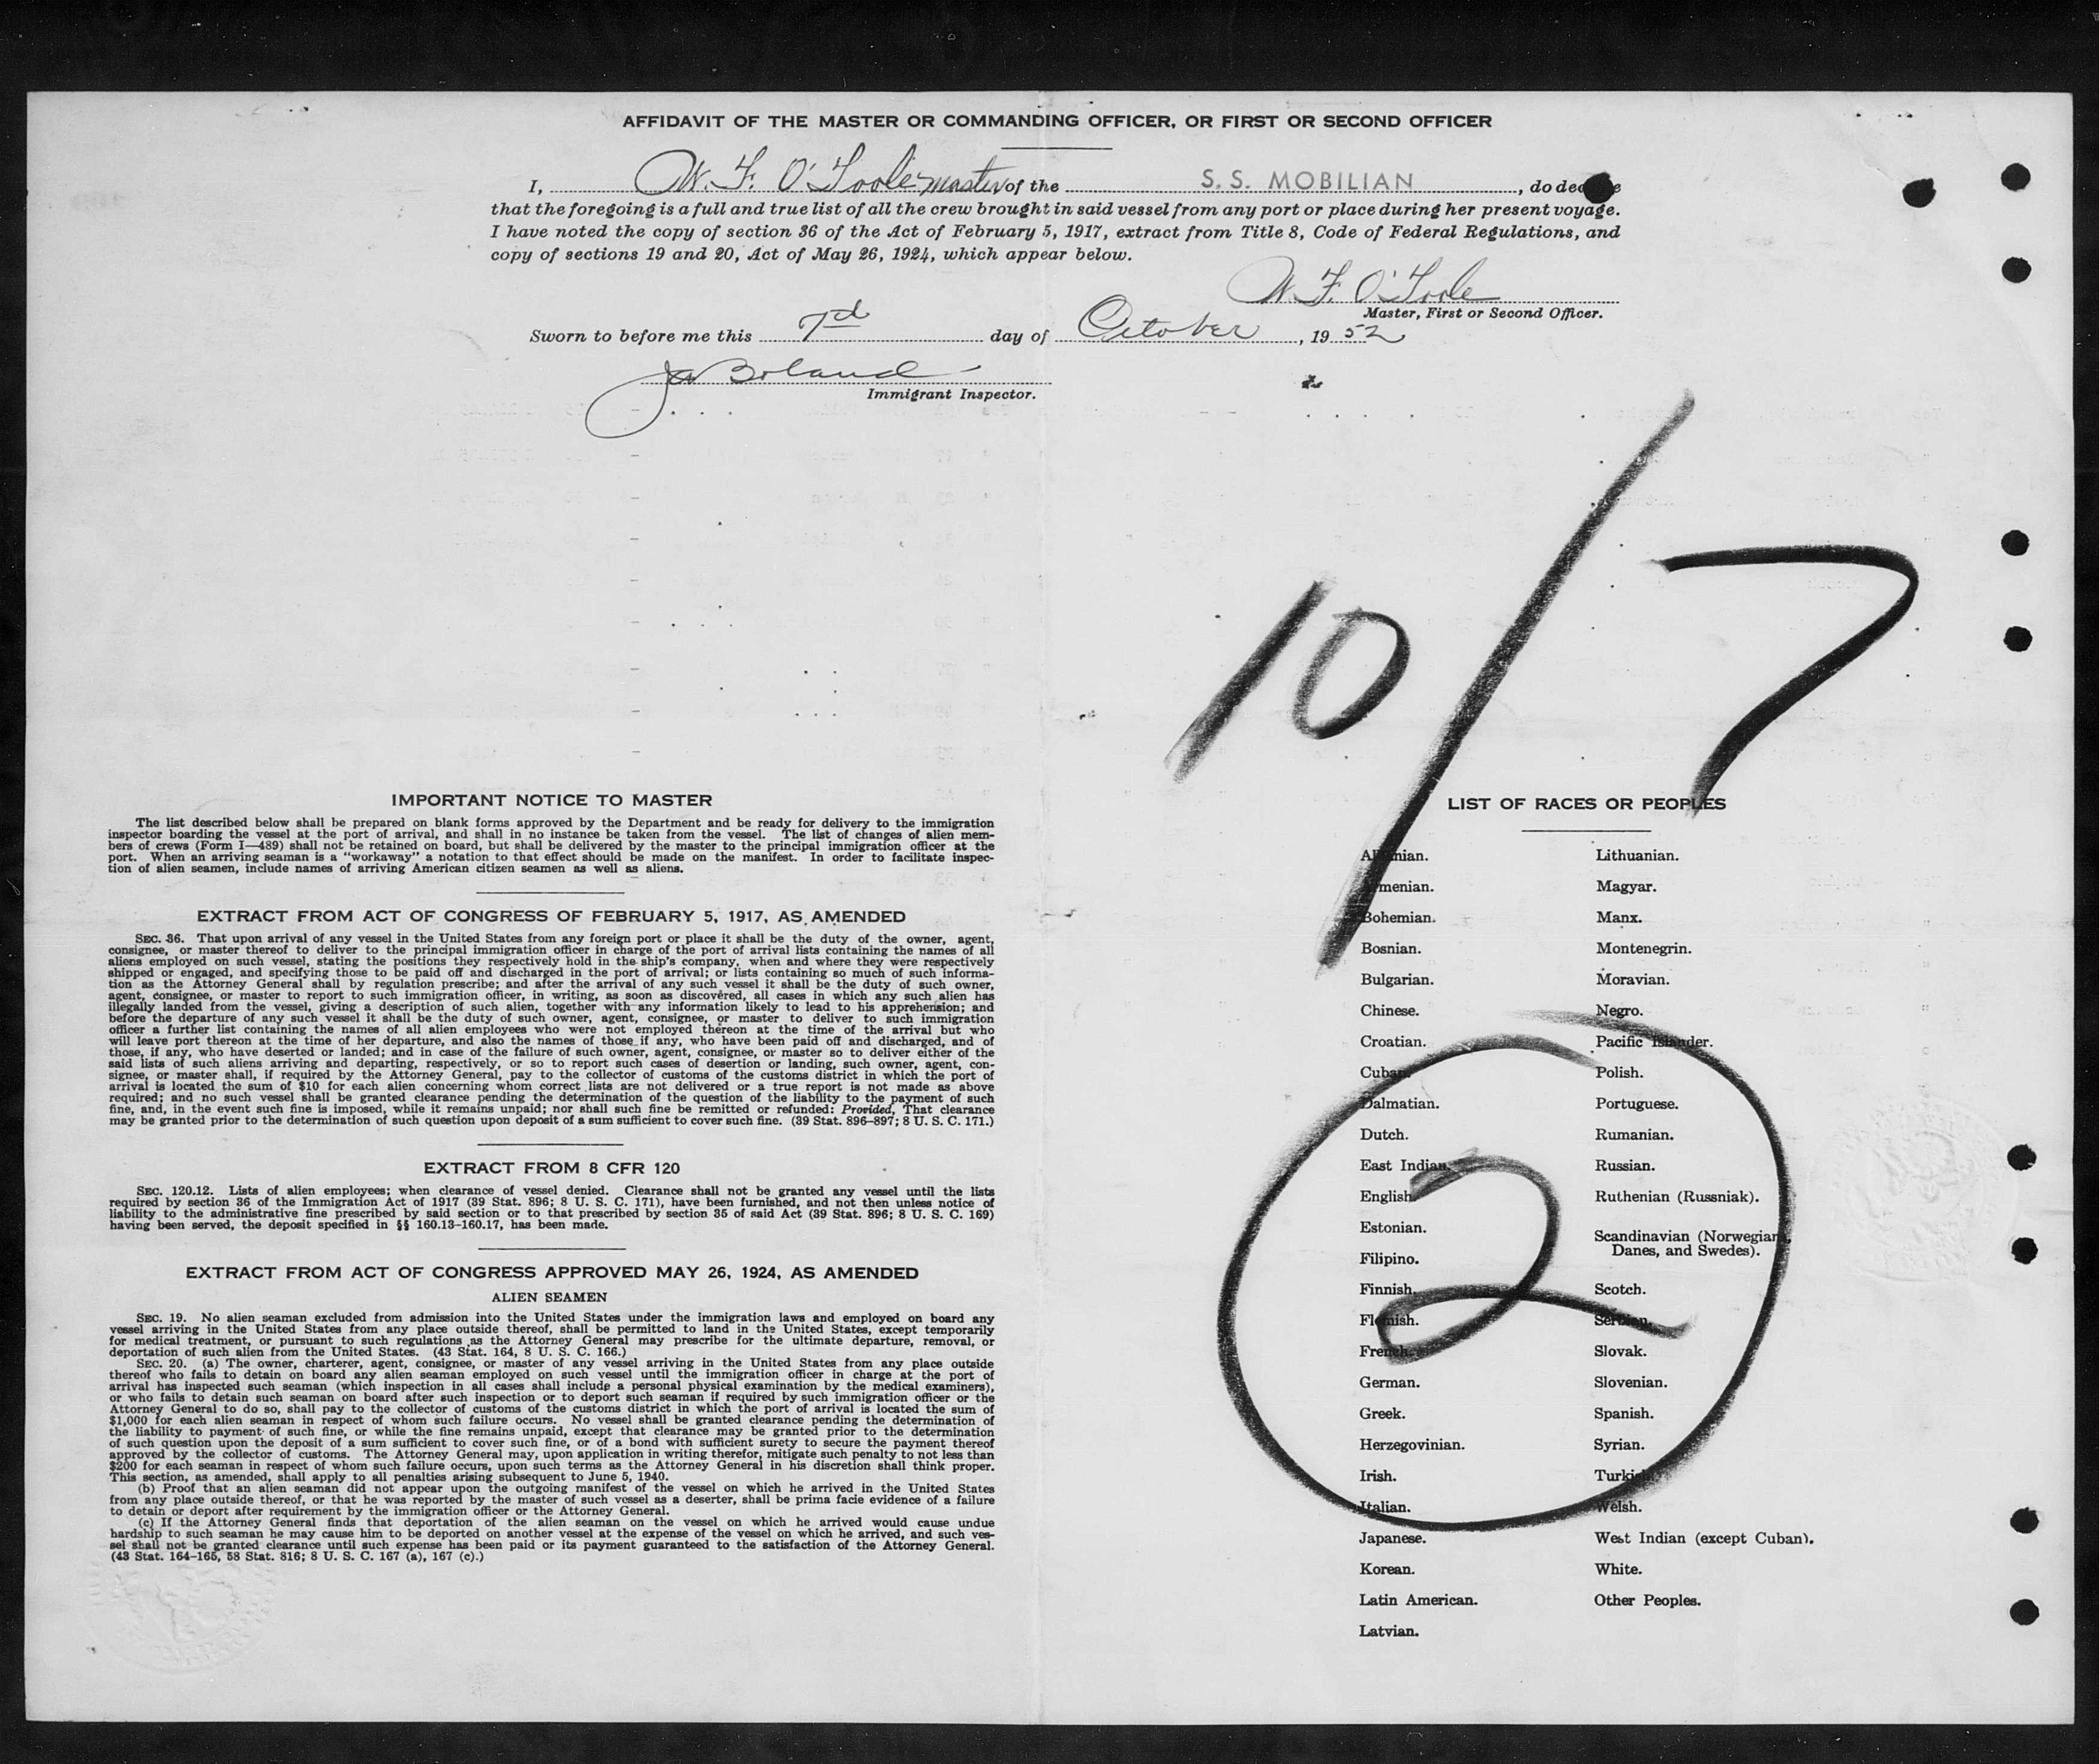 AFFIDAVIT OF THE MASTER OR COMMANDING OFFICER, OR FIRST OR SECOND OFFICER
I, W. F. O'Toole master of the S. S. MOBILIAN, do declare
that the foregoing is a full and true list of all the crew brought in said vessel from any port or place during her present voyage.
I have noted the copy of section 36 of the Act of February 5, 1917, extract from Title 8, Code of Federal Regulations, and
copy of sections 19 and 20, Act of May 26, 1924, which appear below.
W. F. O'Toole
Master, First or Second Officer.
Sworn to before me this 7d day of October, 1952
Boland
Immigrant Inspector.
10/7
IMPORTANT NOTICE TO MASTER
The list described below shall be prepared on blank forms approved by the Department and be ready for delivery to the immigration
inspector boarding the vessel at the port of arrival, and shall in no instance be taken from the vessel. The list of changes of alien mem-
bers of crews (Form I—489) shall not be retained on board, but shall be delivered by the master to the principal immigration officer at the
port. When an arriving seaman is a "workaway" a notation to that effect should be made on the manifest. In order to facilitate inspec-
tion of alien seamen, include names of arriving American citizen seamen as well as aliens.
EXTRACT FROM ACT OF CONGRESS OF FEBRUARY 5, 1917, AS AMENDED
SEC. 36. That upon arrival of any vessel in the United States from any foreign port or place it shall be the duty of the owner, agent,
consignee, or master thereof to deliver to the principal immigration officer in charge of the port of arrival lists containing the names of all
aliens employed on such vessel, stating the positions they respectively hold in the ship's company, when and where they were respectively
shipped or engaged, and specifying those to be paid off and discharged in the port of arrival; or lists containing so much of such informa-
tion as the Attorney General shall by regulation prescribe; and after the arrival of any such vessel it shall be the duty of such owner,
agent, consignee, or master to report to such immigration officer, in writing, as soon as discovered, all cases in which any such alien has
illegally landed from the vessel, giving a description of such alien, together with any information likely to lead to his apprehension; and
before the departure of any such vessel it shall be the duty of such owner, agent, consignee, or master to deliver to such immigration
officer a further list containing the names of all alien employees who were not employed thereon at the time of the arrival but who
will leave port thereon at the time of her departure, and also the names of those, if any, who have been paid off and discharged, and of
those, if any, who have deserted or landed; and in case of the failure of such owner, agent, consignee, or master so to deliver either of the
said lists of such aliens arriving and departing, respectively, or so to report such cases of desertion or landing, such owner, agent, con-
signee, or master shall, if required by the Attorney General, pay to the collector of customs of the customs district in which the port of
arrival is located the sum of $10 for each alien concerning whom correct lists are not delivered or a true report is not made as above
required; and no such vessel shall be granted clearance pending the determination of the question of the liability to the payment of such
fine, and, in the event such fine is imposed, while it remains unpaid; nor shall such fine be remitted or refunded: Provided, That clearance
may be granted prior to the determination of such question upon deposit of a sum sufficient to cover such fine. (39 Stat. 896–897; 8 U. S. C. 171.)
EXTRACT FROM 8 CFR 120
SEC. 120.12. Lists of alien employees; when clearance of vessel denied. Clearance shall not be granted any vessel until the lists
required by section 36 of the Immigration Act of 1917 (39 Stat. 896; 8 U. S. C. 171), have been furnished, and not then unless notice of
liability to the administrative fine prescribed by said section or to that prescribed by section 35 of said Act (39 Stat. 896; 8 U. S. C. 169)
having been served, the deposit specified in §§ 160.13–160.17, has been made.
EXTRACT FROM ACT OF CONGRESS APPROVED MAY 26, 1924, AS AMENDED
ALIEN SEAMEN
SEC. 19. No alien seaman excluded from admission into the United States under the immigration laws and employed on board any
vessel arriving in the United States from any place outside thereof, shall be permitted to land in the United States, except temporarily
for medical treatment, or pursuant to such regulations as the Attorney General may prescribe for the ultimate departure, removal, or
deportation of such alien from the United States. (43 Stat. 164, 8 U. S. C. 166.)
SEC. 20. (a) The owner, charterer, agent, consignee, or master of any vessel arriving in the United States from any place outside
thereof who fails to detain on board any alien seaman employed on such vessel until the immigration officer in charge at the port of
arrival has inspected such seaman (which inspection in all cases shall include a personal physical examination by the medical examiners),
or who fails to detain such seaman on board after such inspection or to deport such seaman if required by such immigration officer or the
Attorney General to do so, shall pay to the collector of customs of the customs district in which the port of arrival is located the sum of
$1,000 for each alien seaman in respect of whom such failure occurs. No vessel shall be granted clearance pending the determination of
the liability to payment of such fine, or while the fine remains unpaid, except that clearance may be granted prior to the determination
of such question upon the deposit of a sum sufficient to cover such fine, or of a bond with sufficient surety to secure the payment thereof
approved by the collector of customs. The Attorney General may, upon application in writing therefor, mitigate such penalty to not less than
$200 for each seaman in respect of whom such failure occurs, upon such terms as the Attorney General in his discretion shall think proper.
This section, as amended, shall apply to all penalties arising subsequent to June 5, 1940.
(b) Proof that an alien seaman did not appear upon the outgoing manifest of the vessel on which he arrived in the United States
from any place outside thereof, or that he was reported by the master of such vessel as a deserter, shall be prima facie evidence of a failure
to detain or deport after requirement by the immigration officer or the Attorney General.
(c) If the Attorney General finds that deportation of the alien seaman on the vessel on which he arrived would cause undue
hardship to such seaman he may cause him to be deported on another vessel at the expense of the vessel on which he arrived, and such ves-
sel shall not be granted clearance until such expense has been paid or its payment guaranteed to the satisfaction of the Attorney General.
(43 Stat. 164–165, 58 Stat. 816; 8 U. S. C. 167 (a), 167 (c).)
LIST OF RACES OR PEOPLES
Albanian.
Armenian.
Bohemian.
Bosnian.
Bulgarian.
Chinese.
Croatian.
Cuban.
Dalmatian.
Dutch.
East Indian.
English.
Estonian.
Filipino.
Finnish.
Flemish.
French.
German.
Greek.
Herzegovinian.
Irish.
Italian.
Japanese.
Korean.
Latin American.
Latvian.
Lithuanian.
Magyar.
Manx.
Montenegrin.
Moravian.
Negro.
Pacific Islander.
Polish.
Portuguese.
Rumanian.
Russian.
Ruthenian (Russniak).
Scandinavian (Norwegians,
Danes, and Swedes).
Scotch.
Serbian.
Slovak.
Slovenian.
Spanish.
Syrian.
Turkish.
Welsh.
West Indian (except Cuban).
White.
Other Peoples.
2